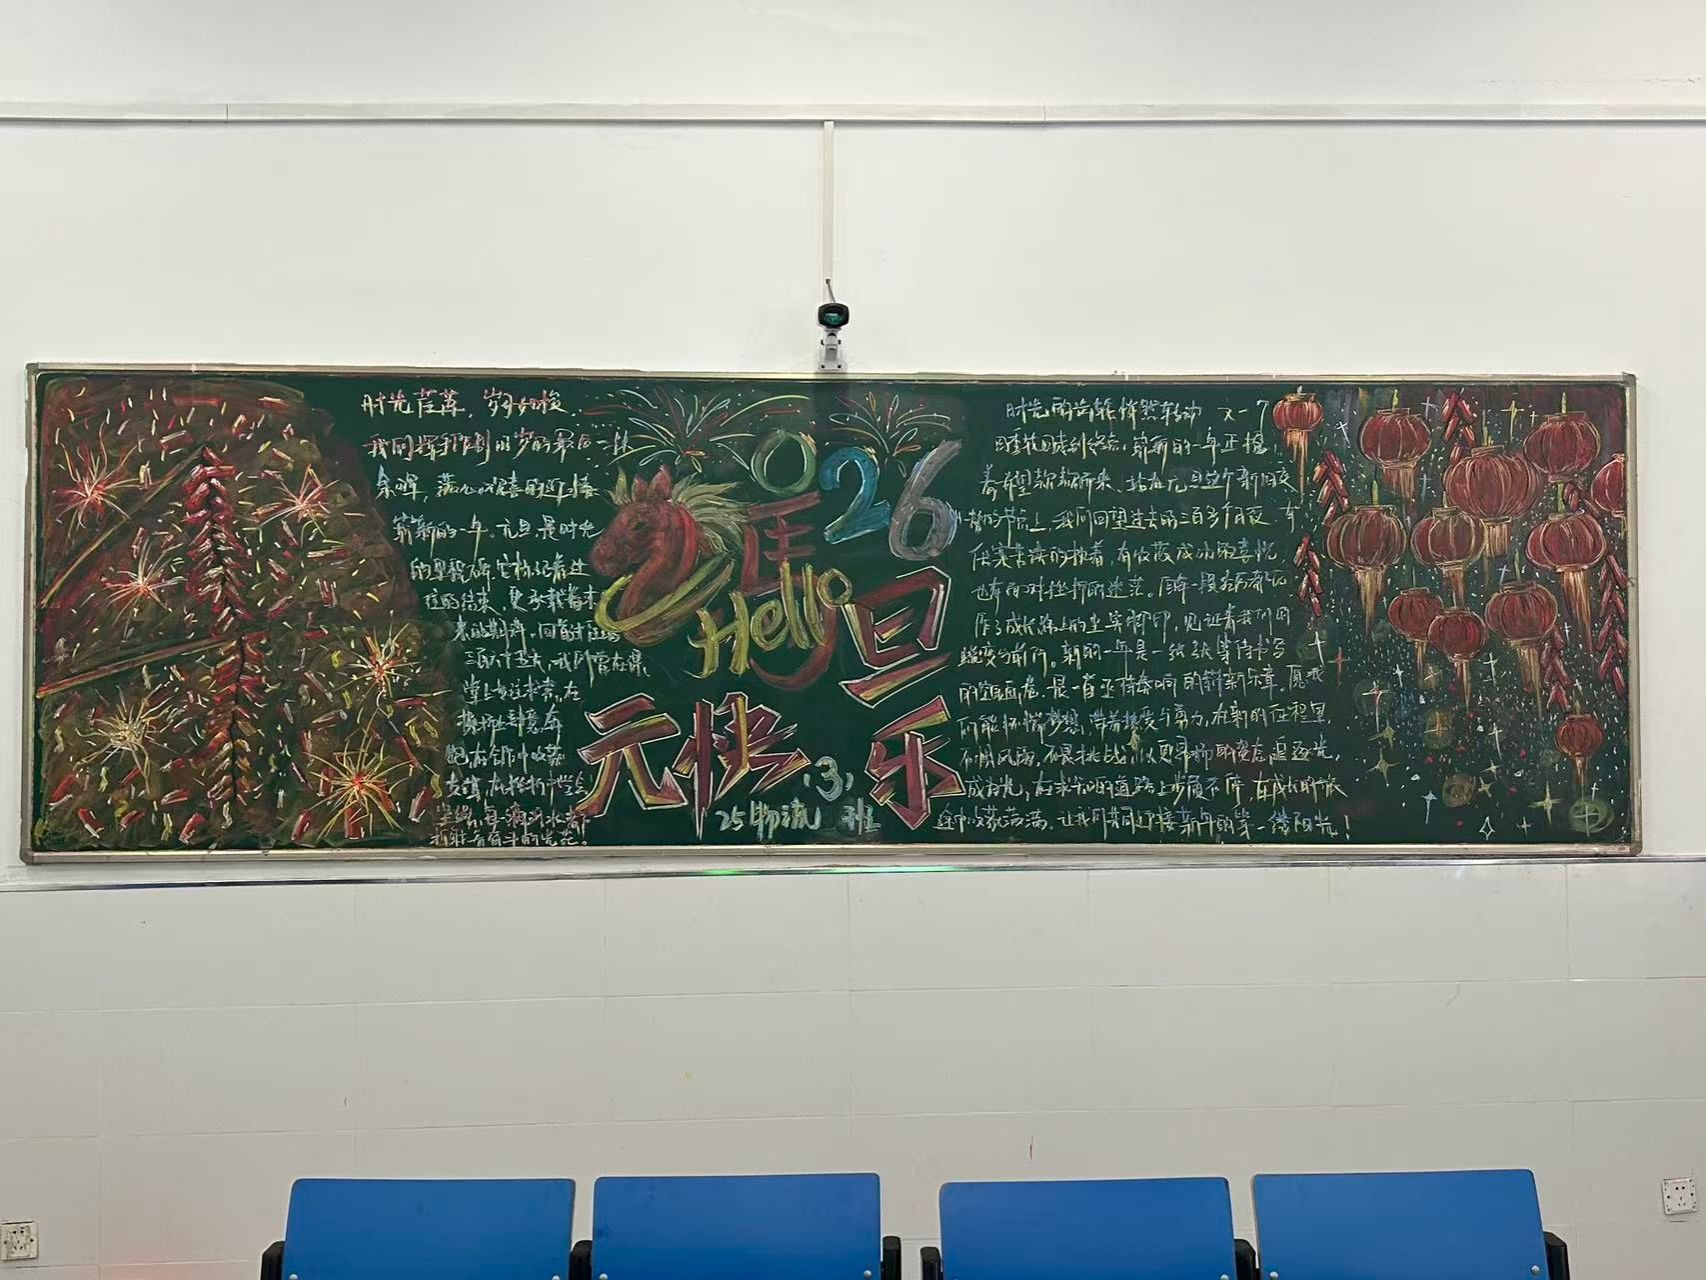 时光荏苒，岁月如梭，
我们挥手作别旧岁的最后一抹
余晖，满心欢喜的迎接
崭新的一年。元旦是时光
的里程碑，它标记着过
往的结束，更承载着未
来的期许，回首过去的
三百六十五天，我们曾在课
堂上专注求索，在
坚守，每一滴汗水都
折射着奋斗的光芒。
026
Hello
旦
元快乐
25物流（3）班
时光的齿轮悄然转动 又一个
四季轮回成到终点，崭新的一年正揣
着希望款款而来，站在元旦这个新旧交
替的节点上，我们回望过去的三百多个日夜，有
伏案苦读的执着，有收获成功的喜悦
也有面对挫折的迷茫，
作了成长路上的坚实脚印，见证着我们的
蜕变与前行。新的一年是一张张等待书写
的空白画卷，是一首亟待奏响的崭新乐章。愿我
们能怀揣梦想，带着热爱与勇力，在新的征程里，
不惧风雨，不畏挑战，以更昂扬的姿态追逐光，
成为光，在求知的道路上步履不停，在成长的旅
途中收获满满。让我们共同迎接新年的第一缕阳光！